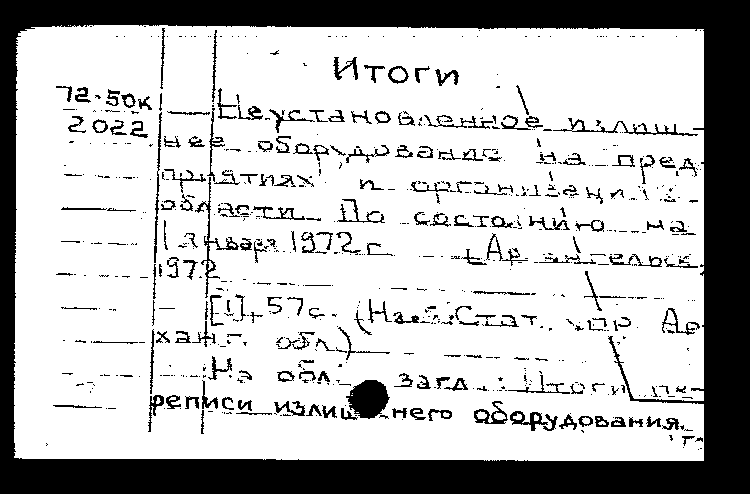 Итоги
72-50к Неустановленное излиш-
2022 нее оборудование на пред-
приятиях и организаци
области По состоянию на
1 января 1972 г
1972
[1], 57с. Стат. упр. Ар-
ханг. обл.)
На обл. загл.: Итоги пе-
реписи излишнего оборудования.